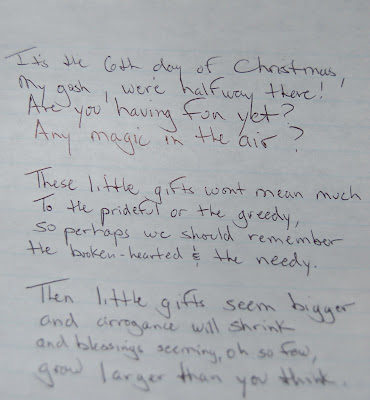 It's the 6th day of Christmas,
My gosh, we're halfway there!
Are you having fun yet?
Any magic in the air?
These little gifts wont mean much
To the prideful or the greedy,
so perhaps we should remember
the broken-hearted & the needy.
Then little gifts seem bigger
and arrogance will shrink
and blessings seeming, oh so few,
grow larger than you think.